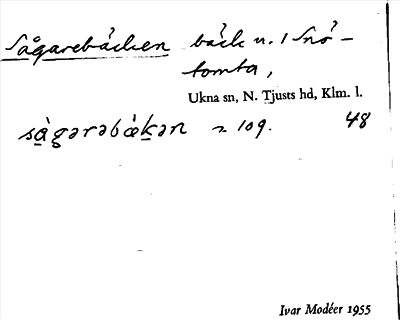 Sågarebäcken bäck n. i Snö-
tomta,
Ukna sn, N. Tjusts hd, Klm. l.
sàgərəbækən 109. 48
Ivar Modéer 1955